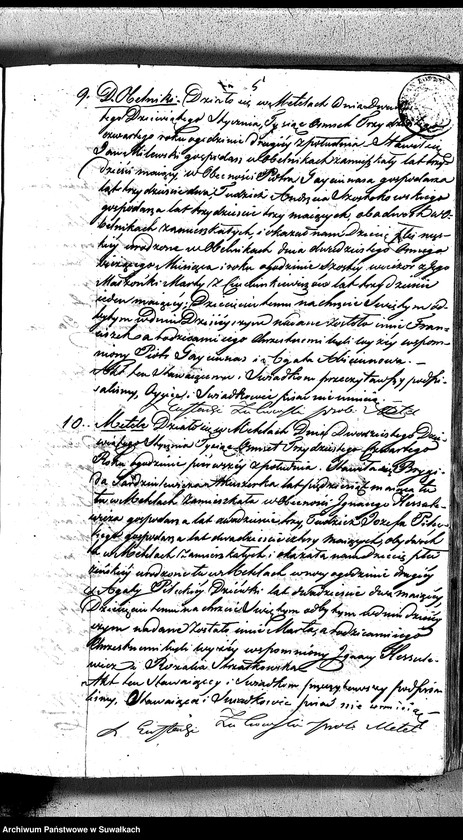 5
9. D. Obelniki. Działo się w Metelach Dnia Dwudzies
tego Dziewiątego Stycznia, Tysiąc Osmset Trzydziestego
czwartego roku o godzinie drugiej z południa. Stawił się
Jan Milewski gospodarz w Obelnikach zamieszkały lat trzy
dzieści mający w Obecności Piotra Gaycunasa gospodarza
lat trzydzieście dwa Tudzież Andrzeja
gospodarza lat trzydzieście trzy mających, obadwóch w O
belnikach zamieszkałych i okazał nam Dziecię płci męs
kiej urodzone w Obelnikach dnia dwudziestego Osmego
bieżącego Miesiąca i roku o godzinie szóstej wieczor z Jego
Małżonki Marty z lat trzydzieście
jeden mającej; Dziecięciu temu na chrzcie Świętym od
bytym w dniu Dzisiejszym nadane zostało imie Fran
ciszek a rodzicami Jego Chrzestnemi byli wyżej wspom
niony Piotr Gaycunas i Agata
Akt ten Stawającemu i Świadkom przeczytawszy podpi
saliśmy, Oyciec i Świadkowie pisać nie umieją
X Eustachi Żukowski prob. Metel
10. Metele Działo się w Metelach Dnia Dwudziestego Dzie
wiątego Stycznia Tysiąc Osmset Trzydziestego Czwartego
Roku o godzinie pierwszej z południa. Stawiła się Brygi
da Akuszerka lat pięćdziesiąt mająca tu
tu w Metelach zamieszkała w Obecności Ignacego
gospodarza lat dwadzieścia trzy Tudzież Józefa
gospodarza lat dwadzieścia cztery mających, obydwóch
tu w Metelach zamieszkałych i okazała nam Dziecię płci
żeńskiej urodzone tu w Metelach o godzinie drugiej
z Agaty Dziewki lat dwadzieście dwa mającej
Dziecięciu temu na chrzcie Świętym odbytym w dniu dzisiej
szym nadane zostało imie Marta, a rodzicami Jego
Chrzestnemi byli wyżej wspomniony Ignacy
i Rozalia
Akt ten Stawającej i Świadkom przeczytawszy podpisa
liśmy, Stawająca i Świadkowie pisać nie umieją
X Eustachi Żukowski prob. Metel
Archiwum Państwowe w Suwałkach